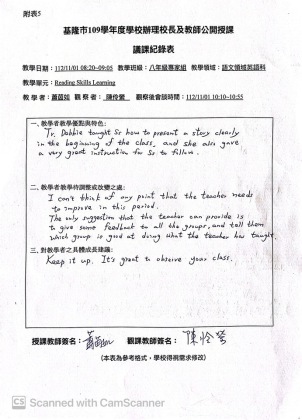 附表5
基隆市109學年度學校辦理校長及教師公開授課
議課紀錄表
教學日期：112/11/01 08:20~09:05 教學班級：八年級專家組 教學領域：語文領域英語科
教學單元：Reading Skills Learning
教 學 者：蕭茵如 觀 察 者： 陳伶縈 觀察後會談時間：112/11/01 10:10~10:55
一、教學者教學優點與特色：
Tr. Debbie taught Ss how to present a story clearly
in the beginning of the class, and she also gave
a very great instruction for Ss to follow.
二、教學者教學待調整或改變之處：
I can't think of any point that the teacher needs
to improve in this period.
The only suggestion that the teacher can provide is
to give some feedback to all the groups, and tell them
which group is good at doing what the teacher has taught.
三、對教學者之具體成長建議：
Keep it up. It's great to observe your class.
授課教師簽名： 觀課教師簽名：
(本表為參考格式，學校得視需求修改)
CS Scanned with CamScanner